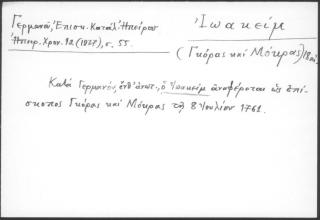 Γερμανού, Επισκ. Κατάλ. Ηπείρου
Ηπειρ. Χρον. 12 (1937), σ. 55.
Ἰωακείμ
(Γκόρας καί Μόκρας)
Κατά Γερμανόν, ἔνθ' ἀνωτ., ὁ Ἰωακείμ ἀναφέρεται ὡς ἐπί-
σκοπος Γκόρας καί Μόκρας τῇ 8 Ἰουλίου 1761.